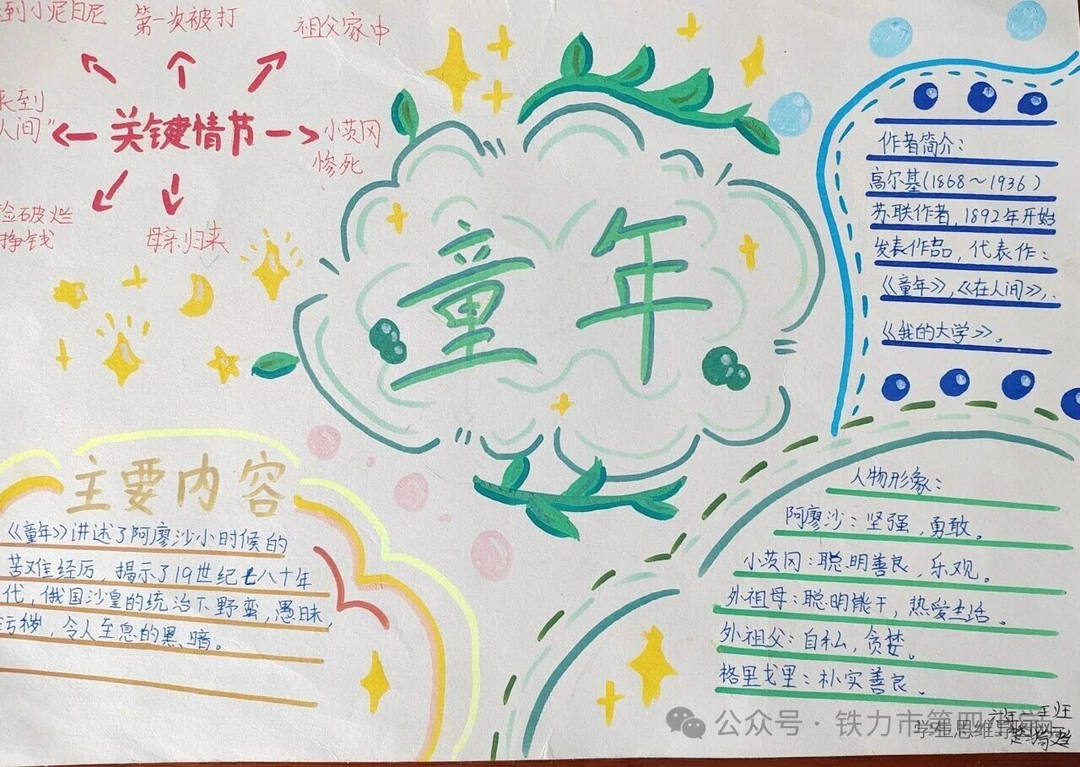 到小泥日尼
第一次被打
祖父家中
来到
人间"
关键情节
小茨冈
惨死
捡破烂
挣钱
母亲归来
童年
作者简介：
高尔基(1868～1936)
苏联作者，1892年开始
发表作品，代表作：
《童年》，《在人间》，
《我的大学》。
主要内容
《童年》讲述了阿廖沙小时候的
苦难经历，揭示了19世纪七八十年
代，俄国沙皇的统治下野蛮，愚昧，
污秽，令人至息的黑暗。
人物形象：
阿廖沙：坚强，勇敢。
小茨冈：聪明善良，乐观。
外祖母：聪明能干，热爱生活。
外祖父：自私，贪婪。
格里戈里：朴实善良。
公众号·铁力市第四
学生思维导图网